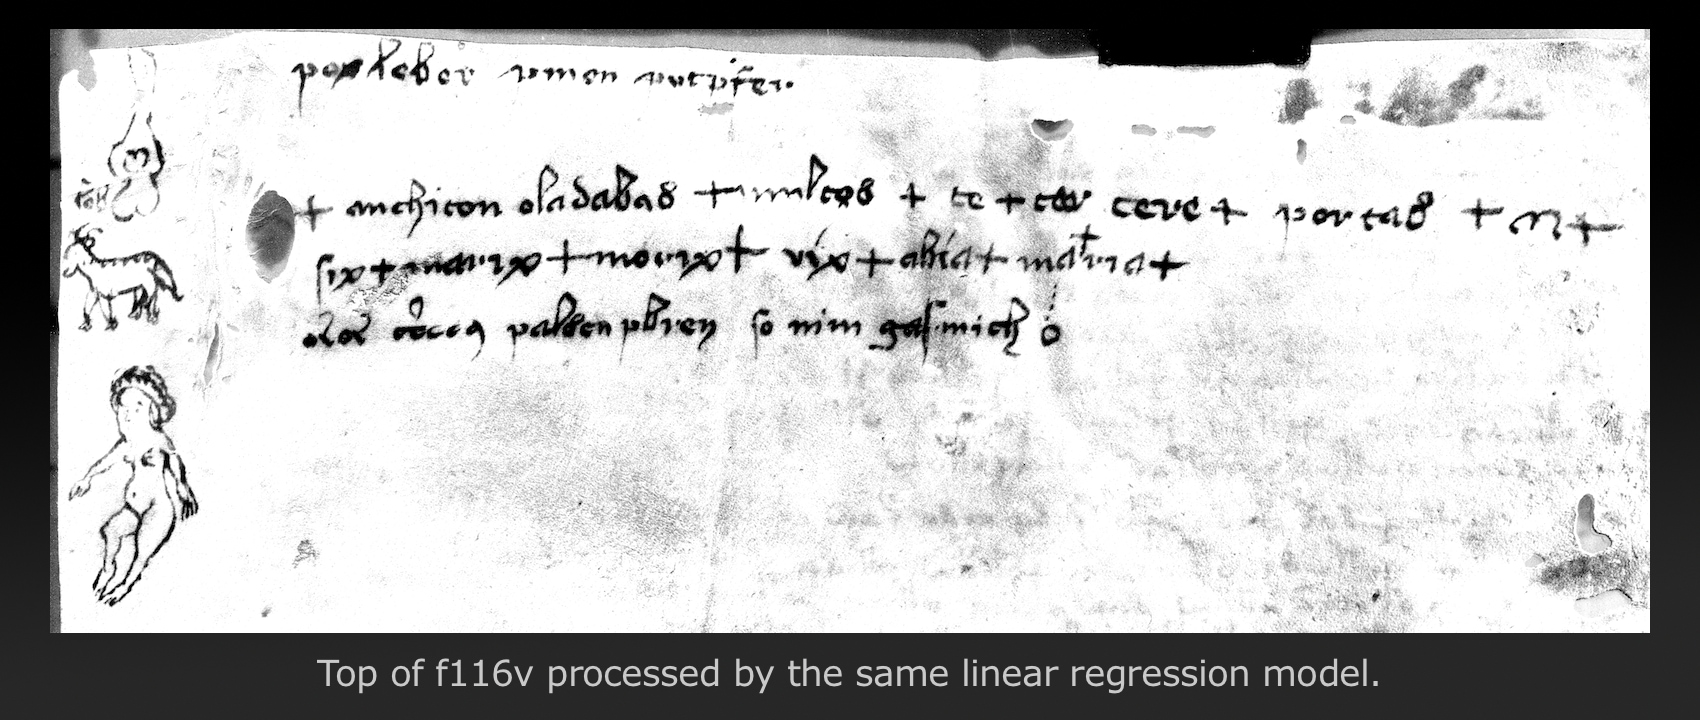 poxleber umen putrifer.
+ anchiton oladabas + multos + te + tar cere + portas + N +
six + marix + morix + vix + abia + maria +
so nim gasmich o
Top of f116v processed by the same linear regression model.